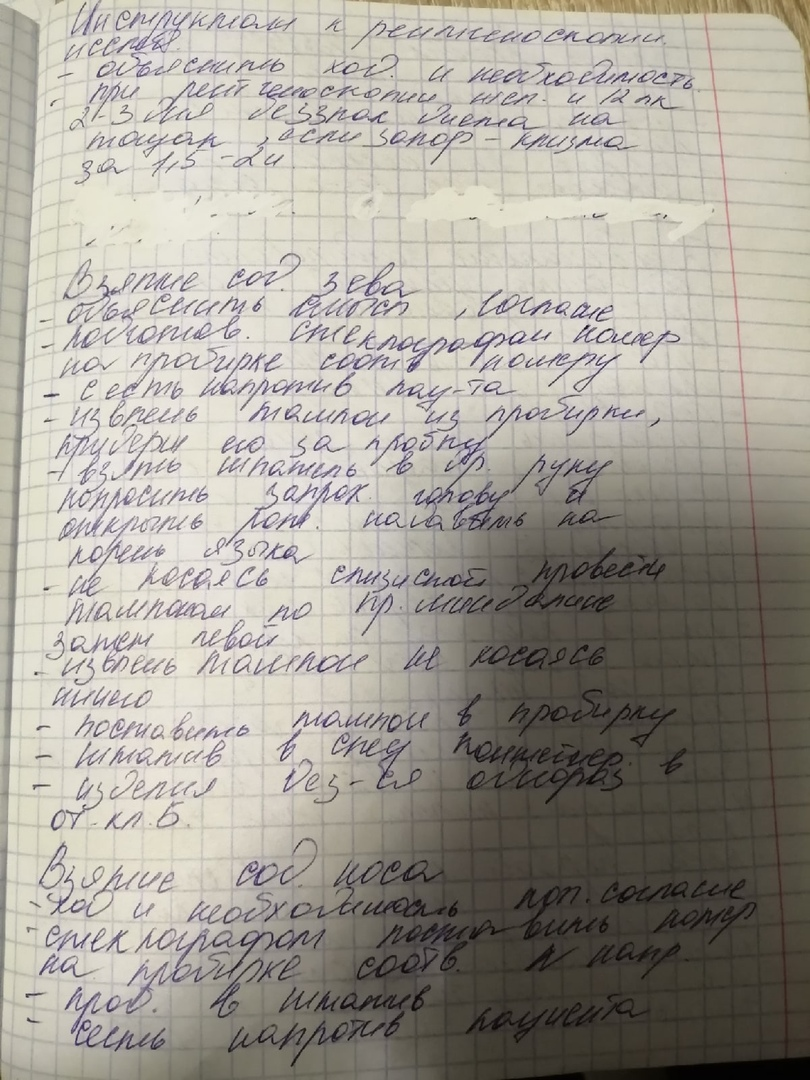 Инструктаж к рентгеноскопии
исслед.
- объяснить ход. и необходимость
- при рентгеноскопии жел. и 12 пк
2-3 дня безшлак диета на
тощак, если запор - клизма
за 1,5 - 2ч.
Взятие сод. зева
- объяснить смысл, согласие
- подготов. стеклографом номер
на пробирке соотв номеру
- сесть напротив пац-та
- извлечь тампон из пробирки,
придерж его за пробку
- взять шпатель в др. руку
попросить запрок. голову и
открыть рот. надавить на
корень языка
- не касаясь слизистой провести
тампоном по пр. миндалине
затем левой
- извлечь тампон не касаясь
ничего
- поставить тампон в пробирку
- штатив в спец контейнер.
- изделия дез-ся однораз в
от. кл. Б.
Взятие сод. носа
- ход и необходимость пол. согласие
- стеклографом поставить номер
на пробирке соотв. N напр.
- проб. в штатив
- сесть напротив пациента